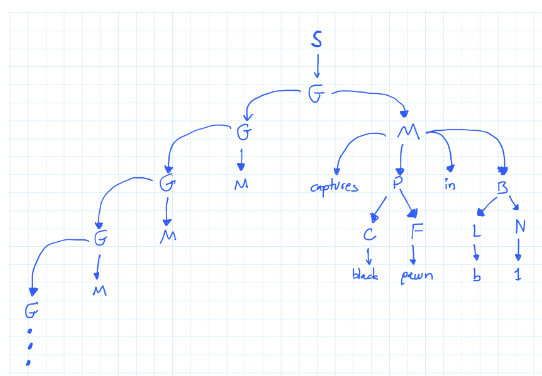 S
G
G M
G M captures P in B
G M C F L N
M black pawn b 1
G